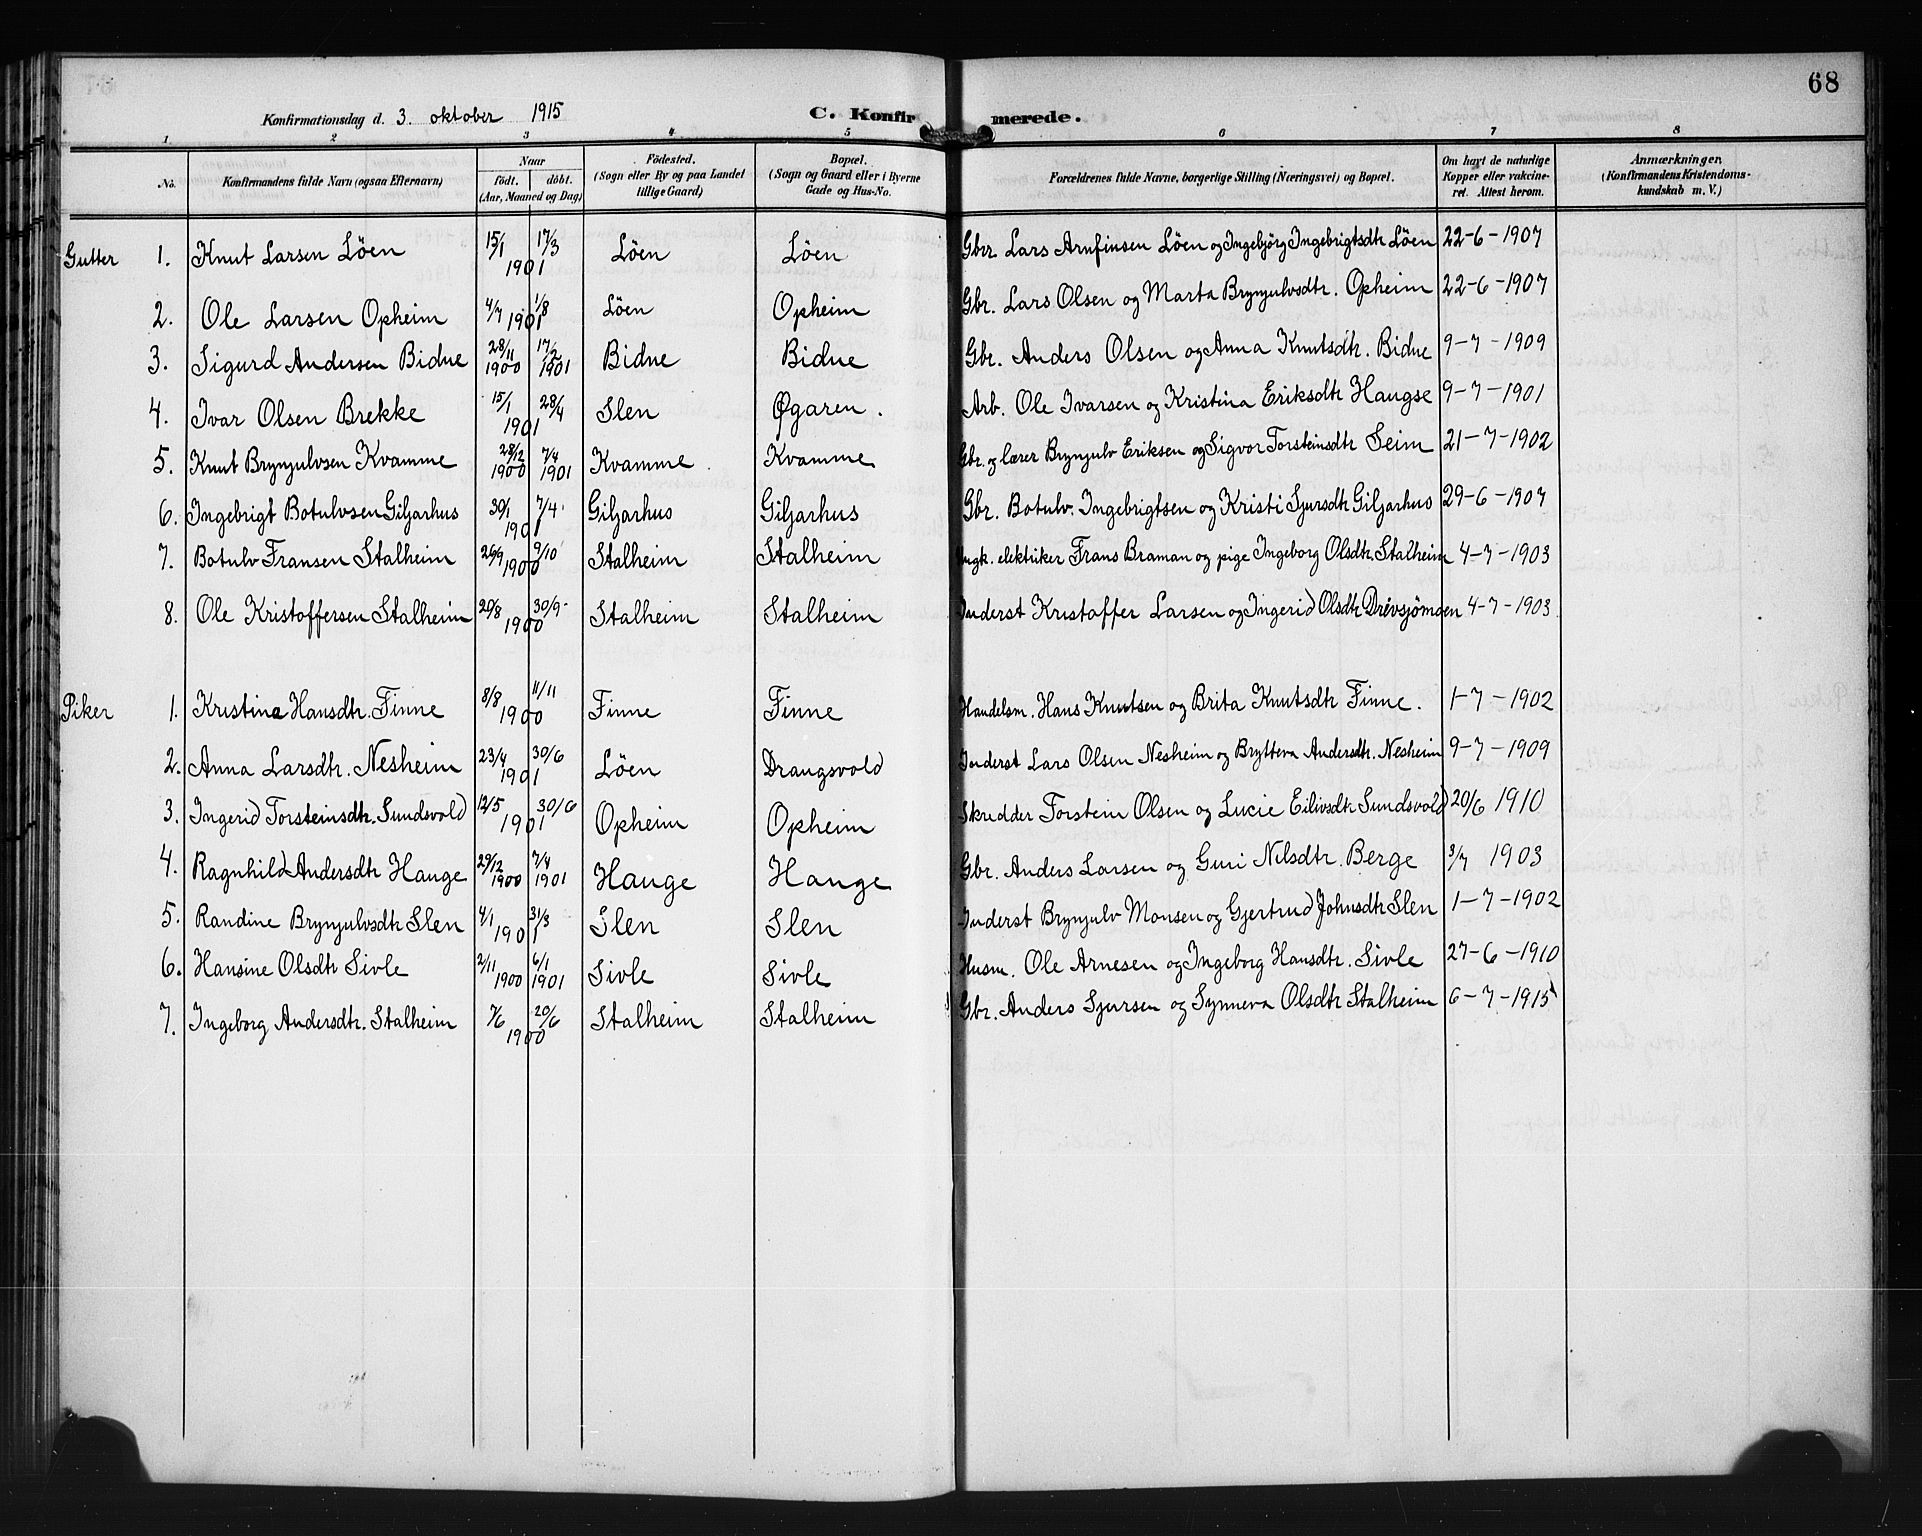 68
Konfirmationsdag d. 3. oktober 1915 C. Konfirmerede.
1. 2 3 4 5 6 7 8
No. Konfirmandens fulde Navn (ogsaa Efternavn) Naar födt. döbt. (Aar, Maaned og Dag) Födested. (Sogn eller By og paa Landet tillige Gaard) Bopæl. (Sogn og Gaard eller i Byerne Gade og Hus-No. Forældrenes fulde Navne, borgerlige Stilling (Næringsvei) og Bopæl. Om havt de naturlige Kopper eller vakcineret. Attest herom. Anmærkninger. (Konfirmandens Kristendomskundskab m. V.)
Gutter 1. Knut Larsen Löen 15/1 17/3 1901 Löen Löen Gbr. Lars Arnfinsen Löen og Ingebjörg Ingebrigtsdtr Löen 22-6-1907
2. Ole Larsen Opheim 4/7 1/8 1901 Löen Opheim Gbr. Lars Olsen og Marta Brynjulvsdtr. Opheim 22-6-1907
3. Sigurd Andersen Bidne 28/11 1900 17/2 1901 Bidne Bidne Gbr. Anders Olsen og Anna Knutsdtr. Bidne 9-7-1909
4. Ivar Olsen Brekke 15/1 28/4 1901 Slen Øgaren. Arb. Ole Ivarsen og Kristina Eriksdtr Haugse 9-7-1901
5. Knut Brynjulvsen Kvamme 28/12 1900 7/4 1901 Kvamme Kvamme Gbr. og lærer Brynjulv Eriksen og Sigvor Torsteinsdtr Seim 21-7-1902
6. Ingebrigt Botulvsen Giljarhus 30/1 7/4 1901 Giljarhus Giljarhus Gbr. Botulv. Ingebrigtsen og Kristi Sjursdtr Giljarhus 29-6-1907
7. Botulv Fransen Stalheim 26/9 9/10 1900 Stalheim Stalheim Ungk. elektriker Frans Braman og pige Ingeborg Olsdtr. Stalheim 4-7-1903
8. Ole Kristoffersen Stalheim 20/8 30/9 1900 Stalheim Stalheim Inderst Kristoffer Larsen og Ingerid Olsdtr Drevsjömoen 4-7-1903
Piker 1. Kristina Hansdtr. Finne 8/8 11/11 1900 Finne Finne Handelsm. Hans Knutsen og Brita Knutsdtr Finne. 1-7-1902
2. Anna Larsdtr. Nesheim 23/4 30/6 1901 Löen Drangsvold Inderst Lars Olsen Nesheim og Brytteva Andersdtr. Nesheim 9-7-1909
3. Ingerid Torsteinsdtr. Sundsvold 12/5 30/6 1901 Opheim Opheim Skredder Torstein Olsen og Lucie Eilivsdtr Sundsvold 20/6 1910
4. Ragnhild Andersdtr Hauge 29/12 1900 7/4 1901 Hauge Hauge Gbr. Anders Larsen og Guri Nilsdtr. Berge 3/7 1903
5. Randine Brynjulvsdtr Slen 4/1 31/3 1901 Slen Slen Inderst Brynjulv Monsen og Gjertrud Johnsdtr Slen 1-7-1902
6. Hansine Olsdtr Sivle 2/11 1900 6/1 1901 Sivle Sivle Husm. Ole Arnesen og Ingeborg Hansdtr. Sivle 27-6-1910
7. Ingeborg Andersdtr. Stalheim 7/6 20/6 1900 Stalheim Stalheim Gbr. Anders Sjursen og Synneva Olsdtr Stalheim 6-7-1915